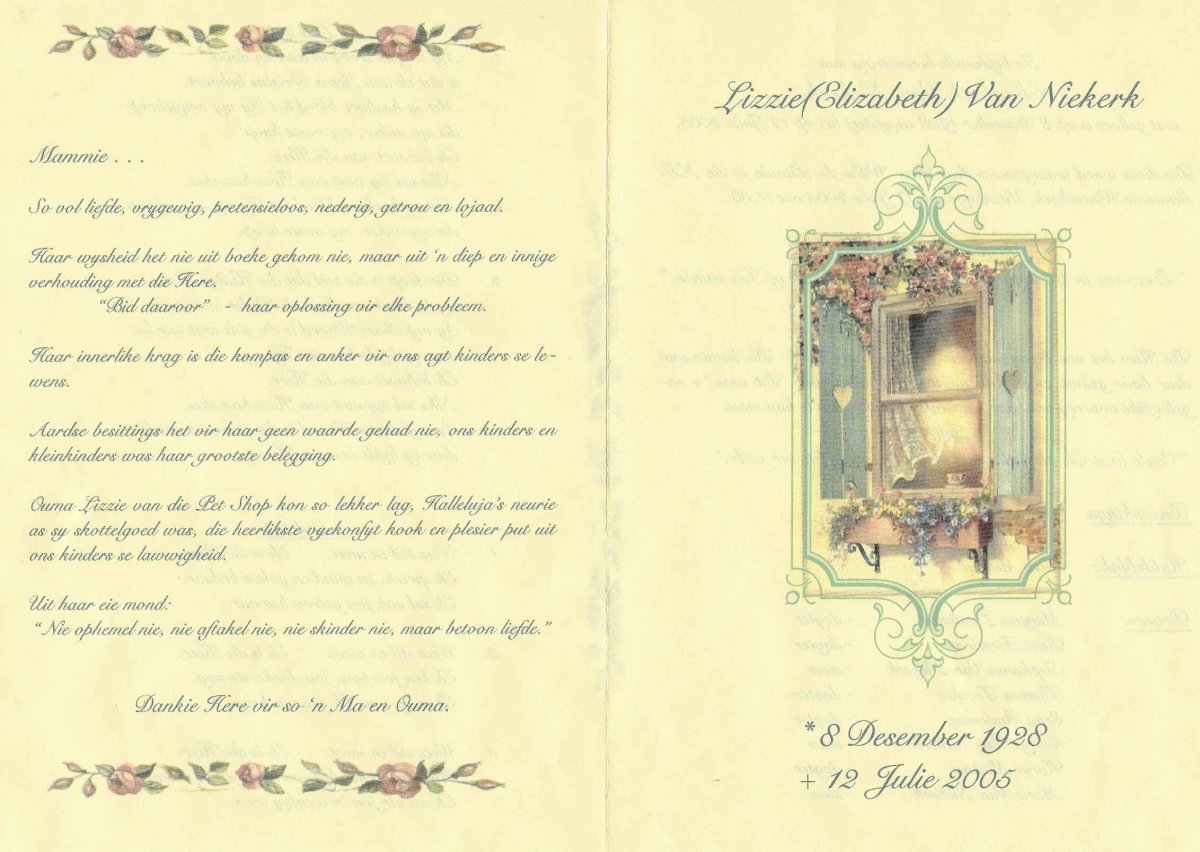 Mammie . . .
So vol liefde, vrygewig, pretensieloos, nederig, getrou en lojaal.
Haar wysheid het nie uit boeke gekom nie, maar uit ‘n diep en innige
verhouding met die Here.
“Bid daaroor” - haar oplossing vir elke probleem.
Haar innerlike krag is die kompas en anker vir ons agt kinders se le-
wens.
Aardse besittings het vir haar geen waarde gehad nie, ons kinders en
kleinkinders was haar grootste belegging.
Ouma Lizzie van die Pet Shop kon so lekker lag, Halleluja’s neurie
as sy skottelgoed was, die heerlikste vyekonfyt kook en plesier put uit
ons kinders se lawwigheid.
Uit haar eie mond:
“Nie ophemel nie, nie aftakel nie, nie skinder nie, maar betoon liefde.”
Dankie Here vir so ‘n Ma en Ouma.
Lizzie(Elizabeth) Van Niekerk
*8 Desember 1928
+ 12 Julie 2005